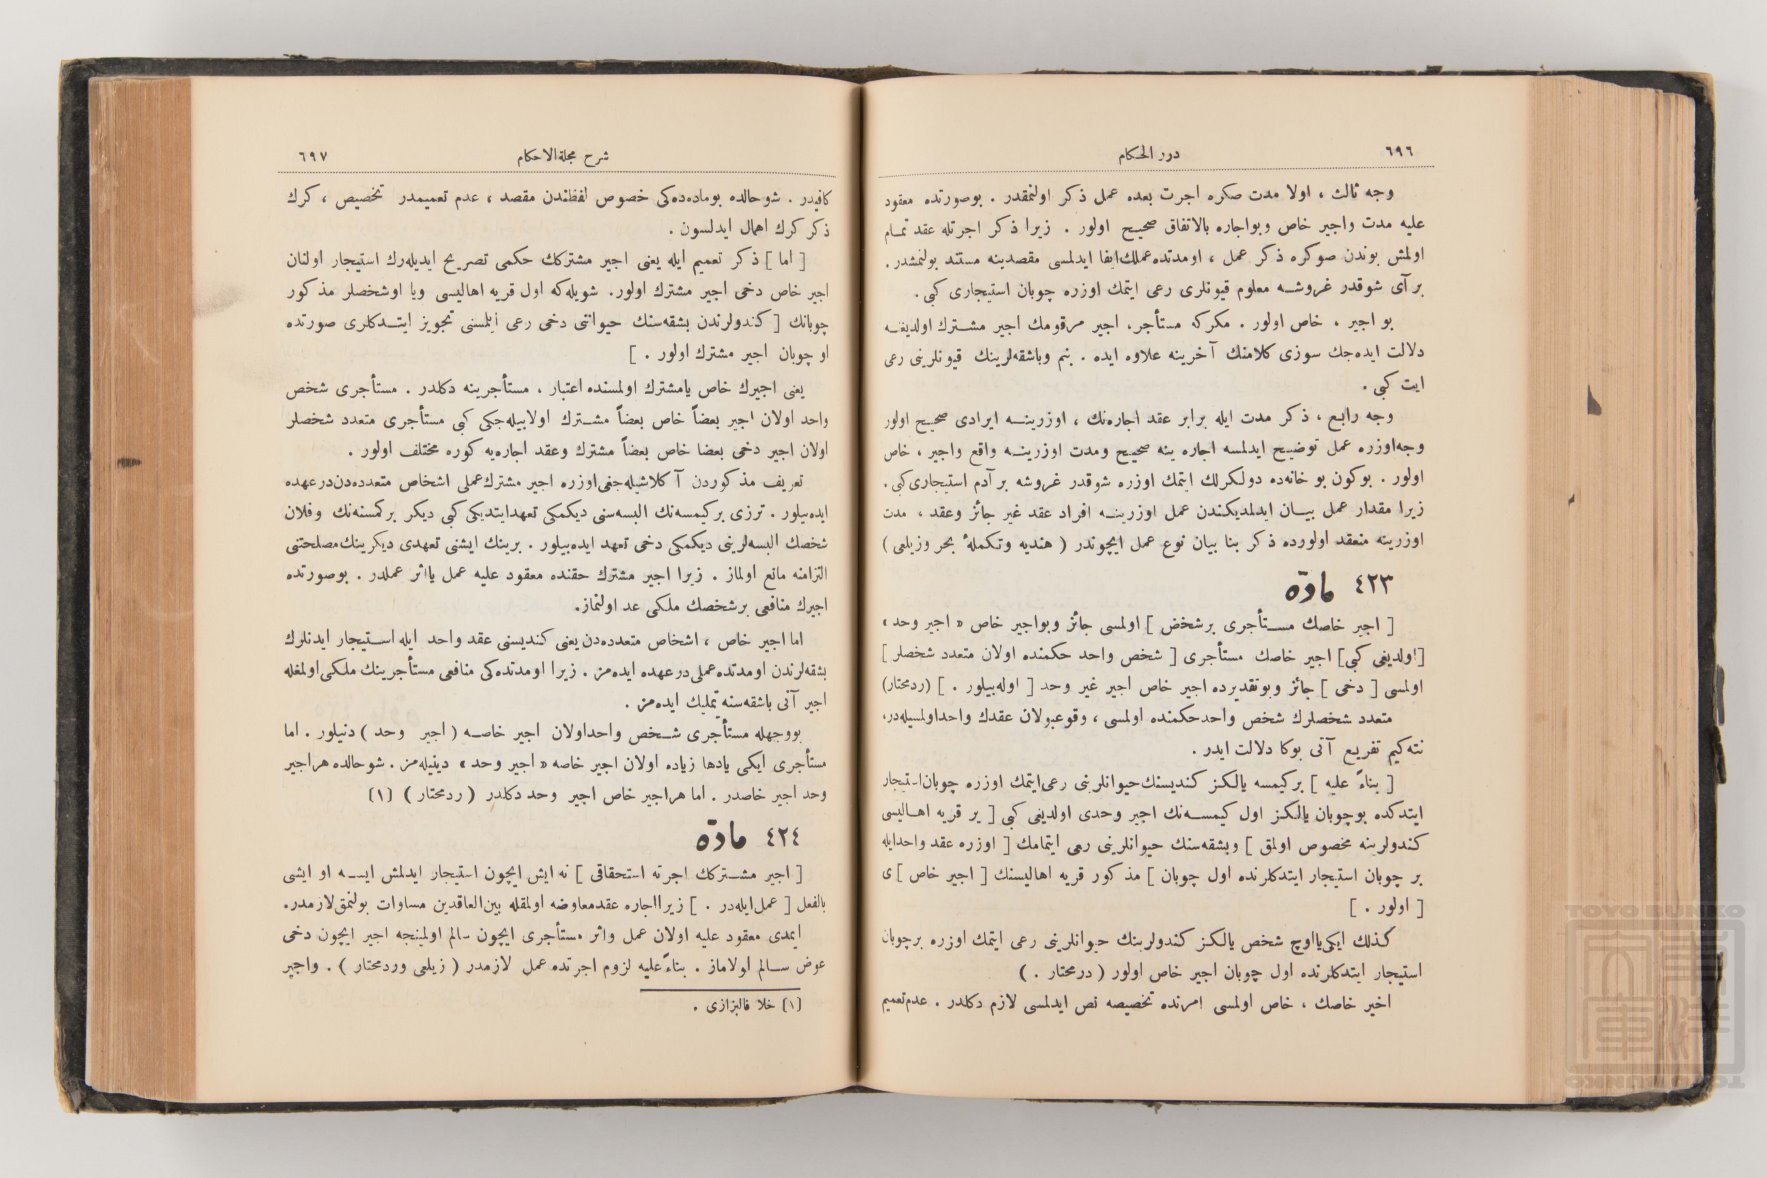 ٦٩٦
درر الحكام
وجه ثالث ، اولا مدت صكره اجرت بعده عمل ذكر اولنمقدر . بوصورتده معقود
عليه مدت واجير خاص وبواجاره بالاتفاق صحيح اولور . زيرا ذكر اجرتله عقد تمام
اولمش بوندن صوكره ذكر عمل ، اومدتده عملك ايفا ايدلمسى مقصدينه مستند بولنمشدر .
بر آى شوقدر غروشه معلوم قيونلرى رعى ايتمك اوزره چوبان استيجارى كبى .
بو اجير ، خاص اولور . مكركه مستأجر، اجير مرقومك اجير مشترك اولديغنه
دلالت ايده جك سوزى كلامنك آخرينه علاوه ايده . بنم وباشقه لرينك قيونلرينى رعى
ايت كبى .
وجه رابع ، ذكر مدت ايله برابر عقد اجاره نك ، اوزرينه ايرادى صحيح اولور
وجه اوزره عمل توضيح ايدلمسه اجاره ينه صحيح ومدت اوزرينه واقع واجير ، خاص
اولور . بوكون بو خانه ده دولكرلك ايتمك اوزره شوقدر غروشه بر آدم استيجارى كبى .
زيرا مقدار عمل بيان ايدلمديكندن عمل اوزرينه افراد عقد غير جائز وعقد ، مدت
اوزرينه منعقد اولورده ذكر بنا بيان نوع عمل ايچوندر ( هنديه وتكملهٔ بحر وزيلعى )
٤٢٣ مادّه
[ اجير خاصك مستأجرى برشخص ] اولمسى جائز وبواجير خاص « اجير وحد »
[اولديغى كبى] اجير خاصك مستأجرى [ شخص واحد حكمنده اولان متعدد شخصلر ]
اولمسى [ دخى ] جائز وبوتقديرده اجير خاص اجير غير وحد [ اوله بيلور . ] (ردمحتار)
متعدد شخصلرك شخص واحد حكمنده اولمسى ، وقوعبولان عقدك واحد اولمسيله در،
نته كيم تفريع آتى بوكا دلالت ايدر .
[ بناءً عليه ] بركيمسه يالكز كنديسنك حيوانلرينى رعى ايتمك اوزره چوبان استيجار
ايتدكده بوچوبان يالكز اول كيمسه نك اجير وحدى اولديغى كبى [ بر قريه اهاليسى
كندولرينه مخصوص اولمق ] وبشقه سنك حيوانلرينى رعى ايتمامك [ اوزره عقد واحد ايله
بر چوبان استيجار ايتدكلرنده اول چوبان ] مذكور قريه اهاليسنك [ اجير خاص ] ى
[ اولور . ]
كذلك ايكى يا اوچ شخص يالكز كندولرينك حيوانلرينى رعى ايتمك اوزره برچوبان
استيجار ايتدكلرنده اول چوبان اجير خاص اولور ( درمختار . )
اخير خاصك ، خاص اولمسى امرنده تخصيصه نص ايدلمسى لازم دكلدر . عدم تعميم
شرح مجلة الاحكام
٦٩٧
كافيدر . شوحالده بوماده ده كى خصوص لفظندن مقصد ، عدم تعميمدر تخصيص ، كرك
ذكر كرك اهمال ايدلسون .
[ اما ] ذكر تعميم ايله يعنى اجير مشتركك حكمى تصريح ايديله رك استيجار اولنان
اجير خاص دخى اجير مشترك اولور. شويله كه اول قريه اهاليسى ويا اوشخصلر مذكور
چوبانك [ كندولرندن بشقه سنك حيواننى دخى رعى ايلمسنى تجويز ايتدكلرى صورتده
او چوبان اجير مشترك اولور . ]
يعنى اجيرك خاص يا مشترك اولمسنده اعتبار ، مستأجرينه دكلدر . مستأجرى شخص
واحد اولان اجير بعضاً خاص بعضاً مشترك اولابيله جكى كبى مستأجرى متعدد شخصلر
اولان اجير دخى بعضا خاص بعضاً مشترك وعقد اجاره يه كوره مختلف اولور .
تعريف مذكوردن آكلاشيله جغى اوزره اجير مشترك عملى اشخاص متعدده دن درعهده
ايده بيلور . ترزى بركيمسه نك البسه سنى ديكمكى تعهد ايتديكى كبى ديكر بركمسنه نك وفلان
شخصك البسه لرينى ديكمكى دخى تعهد ايده بيلور . برينك ايشنى تعهدى ديكرينك مصلحتنى
التزامنه مانع اولماز . زيرا اجير مشترك حقنده معقود عليه عمل يا اثر عملدر . بوصورتده
اجيرك منافعى برشخصك ملكى عد اولنماز.
اما اجير خاص ، اشخاص متعدده دن يعنى كنديسنى عقد واحد ايله استيجار ايدنلرك
بشقه لرندن اومدتده عملى درعهده ايده مز . زيرا اومدتده كى منافعى مستأجرينك ملكى اولمغله
اجير آنى باشقه سنه تمليك ايده مز .
بووجهله مستأجرى شخص واحد اولان اجير خاصه ( اجير وحد ) دنيلور . اما
مستأجرى ايكى يادها زياده اولان اجير خاصه « اجير وحد » دينيله مز . شوحالده هر اجير
وحد اجير خاصدر . اما هر اجير خاص اجير وحد دكلدر ( ردمحتار ) [١]
٤٢٤ مادّه
[ اجير مشتركك اجرته استحقاقى ] نه ايش ايچون استيجار ايدلمش ايسه او ايشى
بالفعل [ عمل ايله در . ] زيرا اجاره عقد معاوضه اولمقله بين العاقدين مساوات بولنمق لازمدر.
ايمدى معقود عليه اولان عمل واثر مستأجرى ايچون سالم اولمينجه اجير ايچون دخى
عوض سالم اولاماز . بناءً عليه لزوم اجرتده عمل لازمدر ( زيلعى وردمحتار ) . واجير
[١] خلا فالبزازى .
TOYO BUNKO
TOYO BUNKO